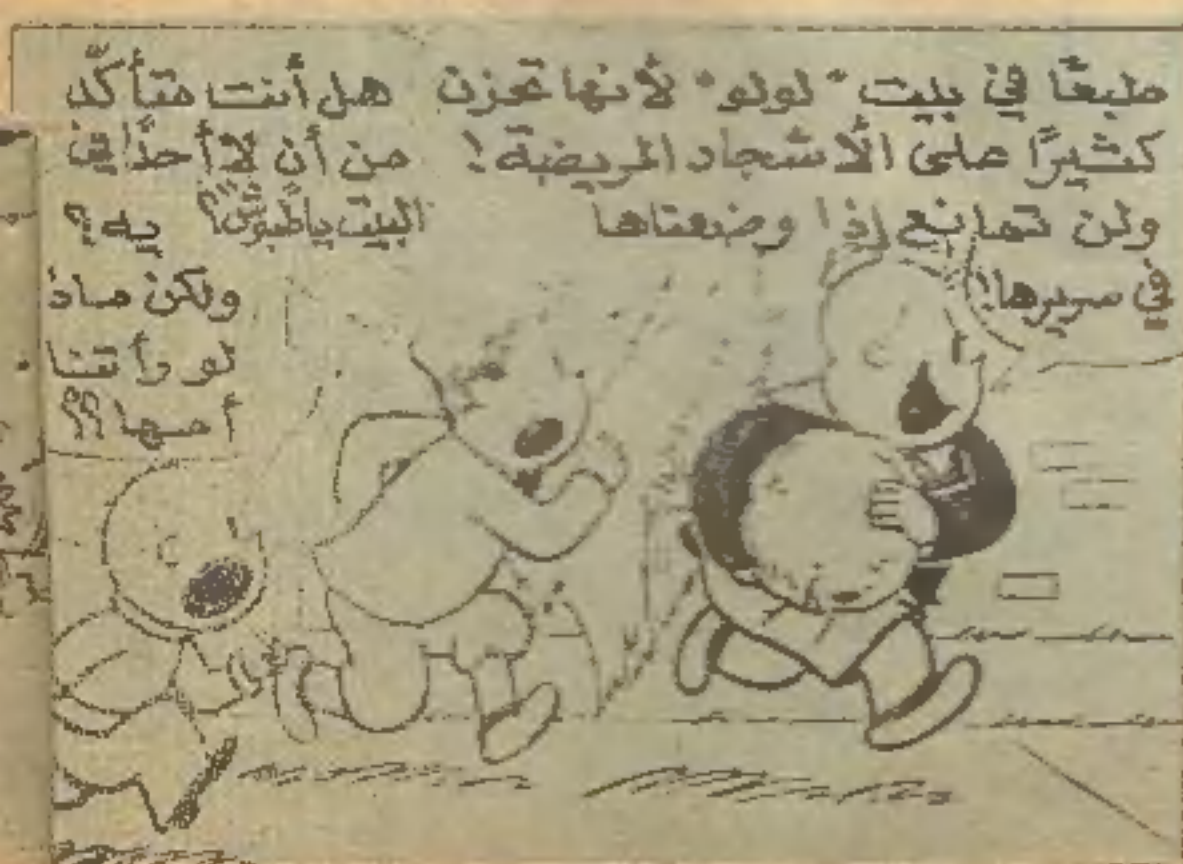 طبعًا في بيت "لولو" لأنها تحزن
كثيرًا على الأشجار المريضة!
ولن تمانع إذا وضعناها
في سريرها!
هل أنت متأكّد
من أن لا أحدًا في
البيت يا طبّوش؟
يه؟
ولكن ماذ
لو رأتنا
أمها؟؟